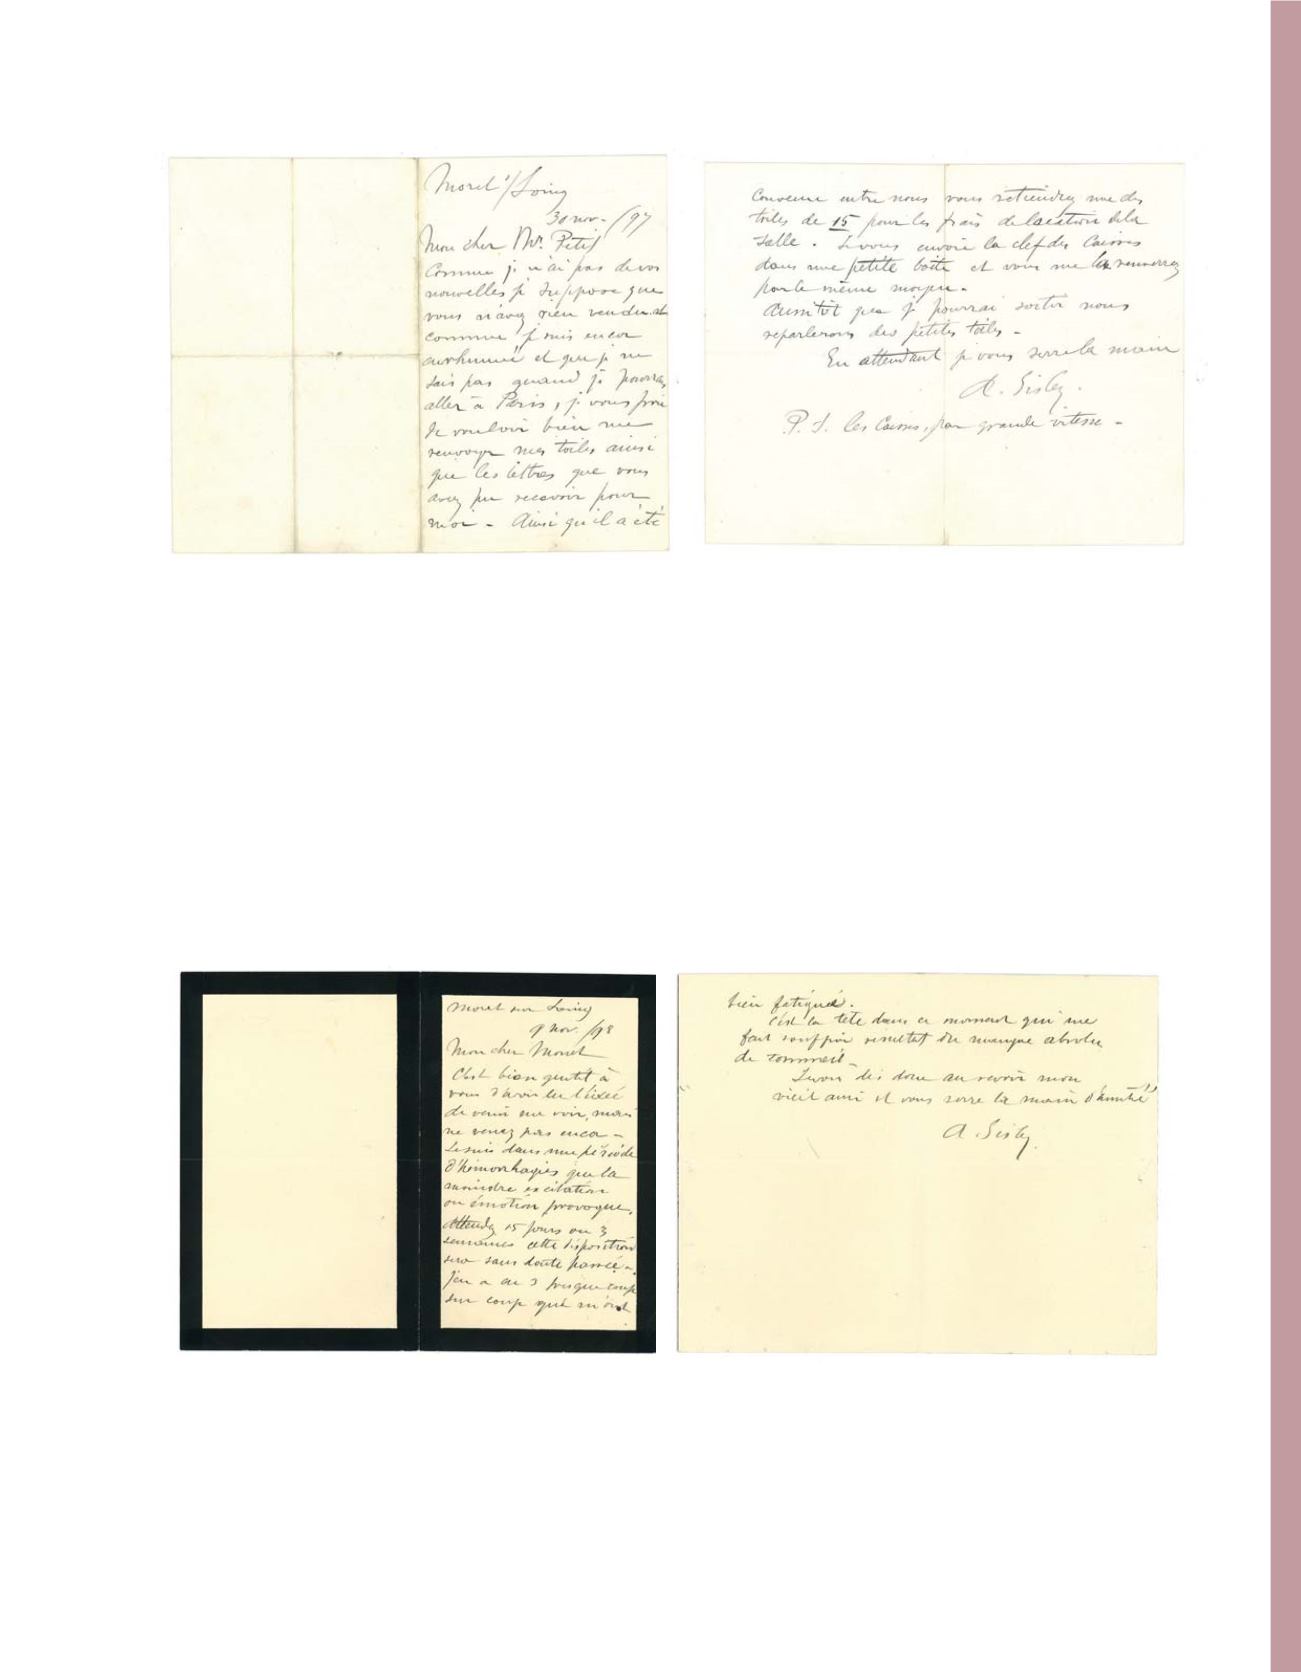 Moret s/Loing
30 nov. /97
Mon cher Mr. Petit
Comme je n'ai pas de vos
nouvelles je suppose que
vous n'avez rien vendu et
comme je suis encor
enrhumé et que je ne
sais pas quand je pourrai
aller à Paris, je vous prie
de vouloir bien me
renvoyer mes toiles ainsi
que les lettres que vous
avez pu recevoir pour
moi - Ainsi qu'il a été
convenu entre nous vous retiendrez une des
toiles de 15 pour les frais de location de la
salle. Je vous envoie la clef des caisses
dans une petite boîte et vous me la renverrez
par le même moyen -
Aussitôt que je pourrai sortir nous
reparlerons des petites toiles -
En attendant je vous serre la main
A. Sisley.
P. S. les caisses, par grande vitesse -
Moret sur Loing
9 Nov. /98
Mon cher Monet
C'est bien gentil à
vous d'avoir eu l'idée
de venir me voir, mais
ne venez pas encor -
Je suis dans une période
d'hémorrhagies que la
moindre excitation
ou émotion provoque.
Attendez 15 jours ou 3
semaines cette disposition
sera sans doute passée -
J'en ai eu 3 presque coup
sur coup qui m'ont
bien fatigué.
C'est la tête dans ce moment qui me
fait souffrir résultat du manque absolu
de sommeil -
Je vous dis donc au revoir mon
vieil ami et vous serre la main d'amitié
A. Sisley.